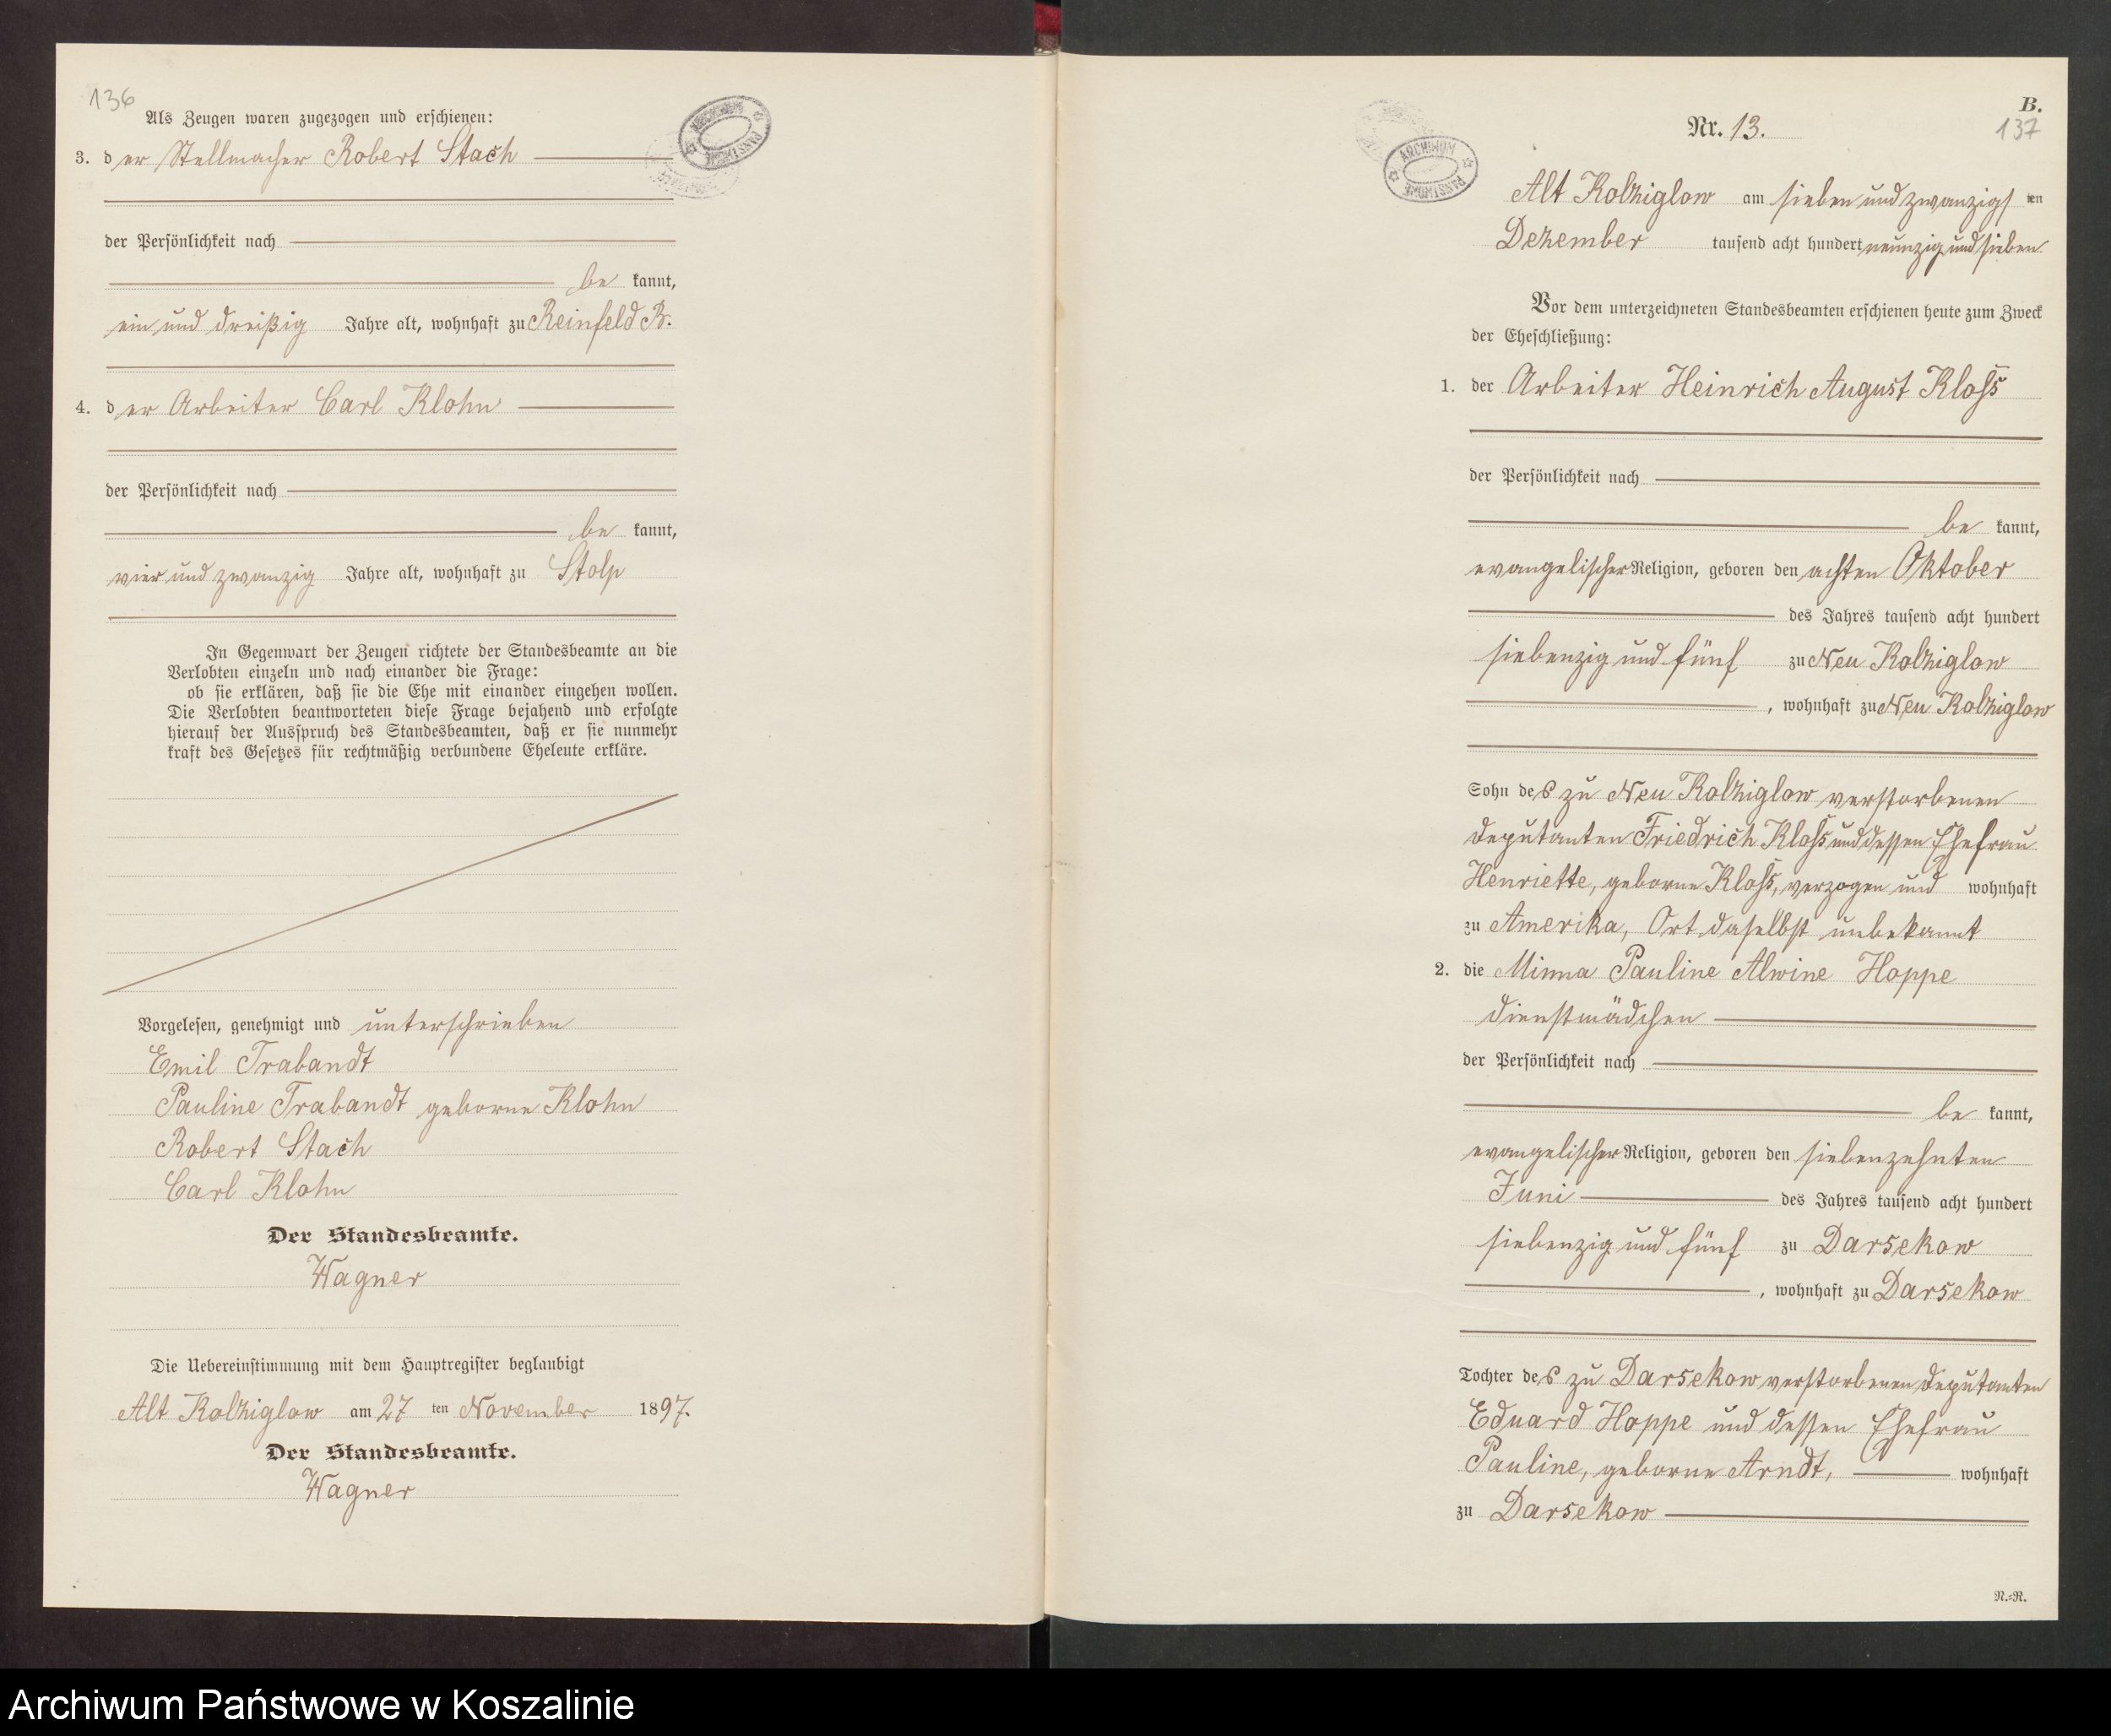 136
Als Zeugen waren zugezogen und erschienen:
3. der Stellmacher Robert Stach
der Persönlichkeit nach
be kannt,
ein und dreißig Jahre alt, wohnhaft zu Reinfeld B.
4. der Arbeiter Carl Klohn
der Persönlichkeit nach
be kannt,
vier und zwanzig Jahre alt, wohnhaft zu Stolp
In Gegenwart der Zeugen richtete der Standesbeamte an die
Verlobten einzeln und nach einander die Frage:
ob sie erklären, daß sie die Ehe mit einander eingehen wollen.
Die Verlobten beantworteten diese Frage bejahend und erfolgte
hierauf der Ausspruch des Standesbeamten, daß er sie nunmehr
kraft des Gesetzes für rechtmäßig verbundene Eheleute erkläre.
Vorgelesen, genehmigt und unterschrieben
Emil Trabandt
Pauline Trabandt geborne Klohn
Robert Stach
Carl Klohn
Der Standesbeamte.
Wagner
Die Uebereinstimmung mit dem Hauptregister beglaubigt
Alt Kolziglow am 27 ten November 1897.
Der Standesbeamte.
Wagner
ARCHIWUM PAŃSTWOWE
B.
137
Nr. 13.
ARCHIWUM PAŃSTWOWE
Alt Kolziglow am sieben und zwanzigs ten
Dezember tausend acht hundert neunzig und sieben
Vor dem unterzeichneten Standesbeamten erschienen heute zum Zweck
der Eheschließung:
1. der Arbeiter Heinrich August Kloss
der Persönlichkeit nach
be kannt,
evangelischer Religion, geboren den achten Oktober
des Jahres tausend acht hundert
siebenzig und fünf zu Neu Kolziglow
, wohnhaft zu Neu Kolziglow
Sohn des zu Neu Kolziglow verstorbenen
Deputanten Friedrich Kloss und dessen Ehefrau
Henriette, geborne Kloss, verzogen und wohnhaft
zu Amerika, Ort daselbst unbekannt
2. die Minna Pauline Alwine Hoppe
Dienstmädchen
der Persönlichkeit nach
be kannt,
evangelischer Religion, geboren den siebenzehnten
Juni des Jahres tausend acht hundert
siebenzig und fünf zu Darsekow
, wohnhaft zu Darsekow
Tochter des zu Darsekow verstorbenen Deputanten
Eduard Hoppe und dessen Ehefrau
Pauline, geborne Arndt, wohnhaft
zu Darsekow
R.=R.
Archiwum Państwowe w Koszalinie